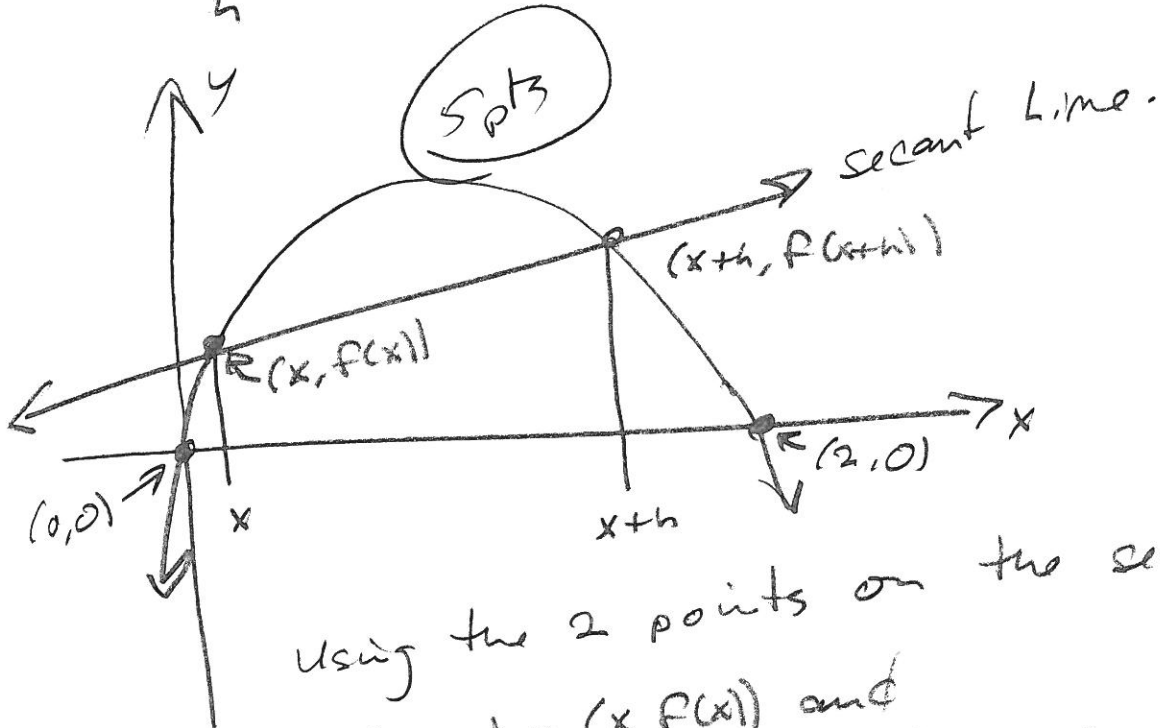 h
y
5 pts
secant Line.
(x+h, f(x+h))
(x, f(x))
x
(2,0)
(0,0)
x
x+h
Using the 2 points on the se
(x, f(x)) and